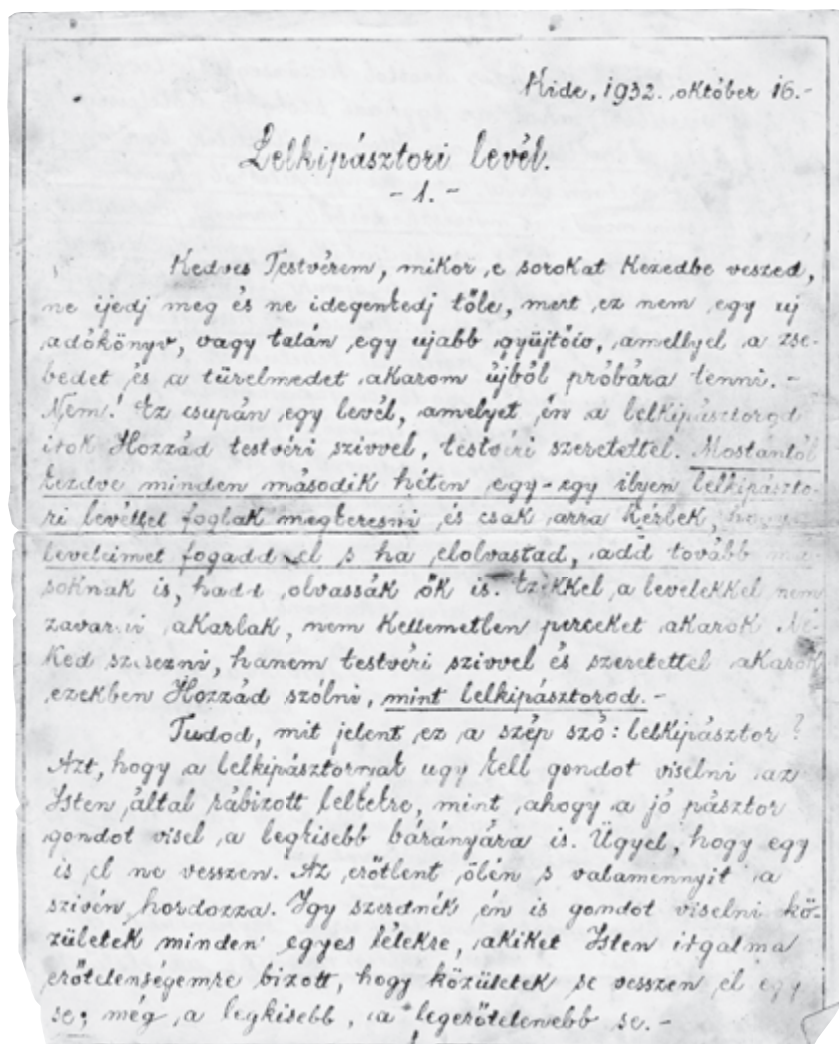 Kide, 1932. október 16.-
Lelkipásztori levél.
- 1. -
Kedves Testvérem, mikor e sorokat kezedbe veszed,
ne ijedj meg és ne idegenkedj tőle, mert ez nem egy uj
adókönyv, vagy talán egy ujabb gyüjtőív, amellyel a zse-
bedet és a türelmedet akarom újból próbára tenni. -
Nem! Ez csupán egy levél, amelyet én a lelkipásztorod
irok Hozzád testvéri szivvel, testvéri szeretettel. Mostantól
kezdve minden második héten egy-egy ilyen lelkipászto-
ri levéllel foglak megkeresni és csak arra kérlek, hogy
leveleimet fogadd el s ha elolvastad, add tovább má-
soknak is, hadd olvassák ők is. Ezekkel a levelekkel nem
zavarni akarlak, nem kellemetlen perceket akarok Né-
ked szerezni, hanem testvéri szivvel és szeretettel akarok
ezekben Hozzád szólni, mint lelkipásztorod. -
Tudod, mit jelent ez a szép szó: lelkipásztor?
Azt, hogy a lelkipásztornak ugy kell gondot viselni az
Isten által rábizott lelkekre, mint ahogy a jó pásztor
gondot visel a legkisebb bárányára is. Ügyel, hogy egy
is el ne vesszen. Az erőtlent ölén s valamennyit a
szivén hordozza. Igy szeretnék én is gondot viselni kö-
zületek minden egyes lélekre, akiket Isten irgalma
erőtelenségemre bizott, hogy közületek se vesszen el egy
se; még a legkisebb, a legerőtelenebb se. -